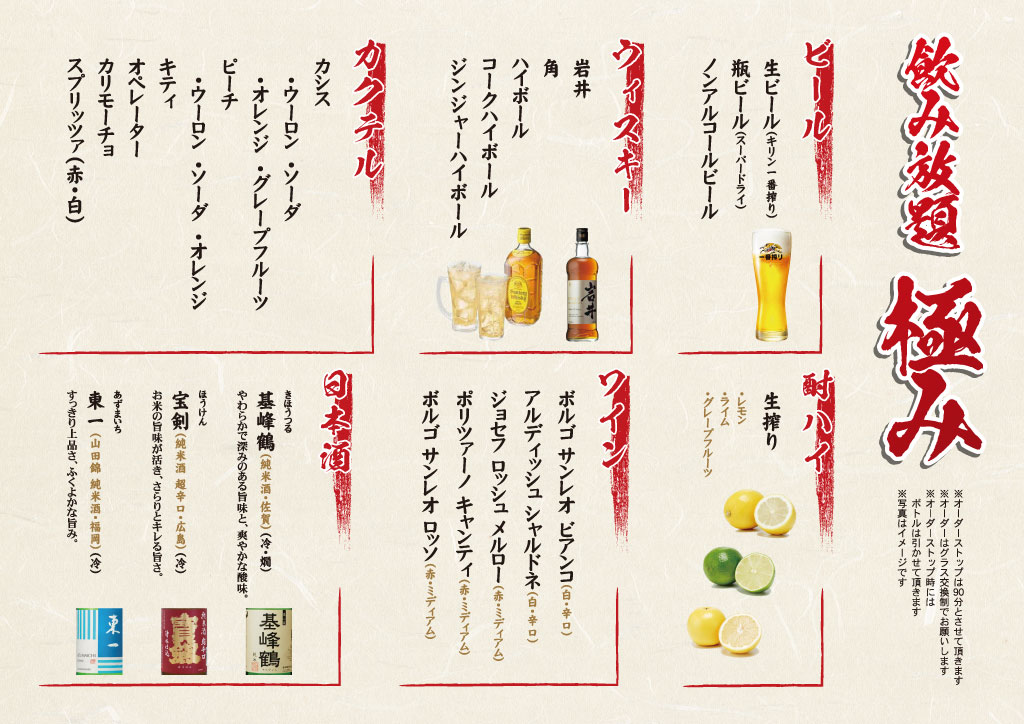 飲み放題 極み
※オーダーストップは90分とさせて頂きます
※オーダーはグラス交換制でお願いします
※オーダーストップ時には
ボトルは引かせて頂きます
※写真はイメージです
ビール
生ビール(キリン一番搾り)
瓶ビール(スーパードライ)
ノンアルコールビール
一番搾り
ウィスキー
岩井
角
ハイボール
コークハイボール
ジンジャーハイボール
岩井
カクテル
カシス
・ウーロン ・ソーダ
・オレンジ ・グレープフルーツ
ピーチ
・ウーロン ・ソーダ ・オレンジ
キティ
オペレーター
カリモーチョ
スプリッツァ(赤・白)
酎ハイ
生搾り
・レモン
・ライム
・グレープフルーツ
ワイン
ボルゴ サンレオ ビアンコ(白・辛口)
アルディッシュ シャルドネ(白・辛口)
ジョセフ ロッシュ メルロー(赤・ミディアム)
ポリツァーノ キャンティ(赤・ミディアム)
ボルゴ サンレオ ロッソ(赤・ミディアム)
日本酒
きほうつる
基峰鶴(純米酒・佐賀)(冷・燗)
やわらかで深みのある旨味と、爽やかな酸味。
ほうけん
宝剣(純米酒 超辛口・広島)(冷)
お米の旨味が活き、さらりとキレる旨さ。
あずまいち
東一(山田錦 純米酒・福岡)(冷)
すっきり上品さ、ふくよかな旨み。
基峰鶴
寳剣
東一